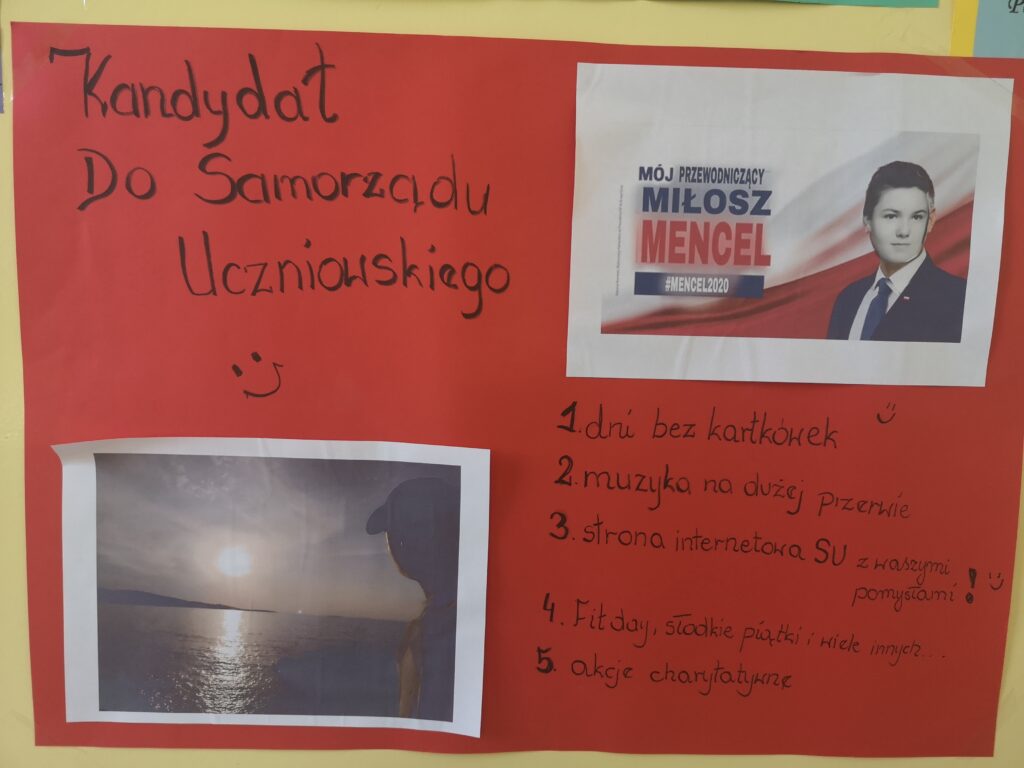 Kandydat
Do Samorządu
Uczniowskiego
MÓJ PRZEWODNICZĄCY
MIŁOSZ
MENCEL
#MENCEL2020
1. dni bez kartkówek
2. muzyka na dużej przerwie
3. strona internetowa SU z waszymi
pomysłami!
4. Fit day, słodkie piątki i wiele innych...
5. akcje charytatywne